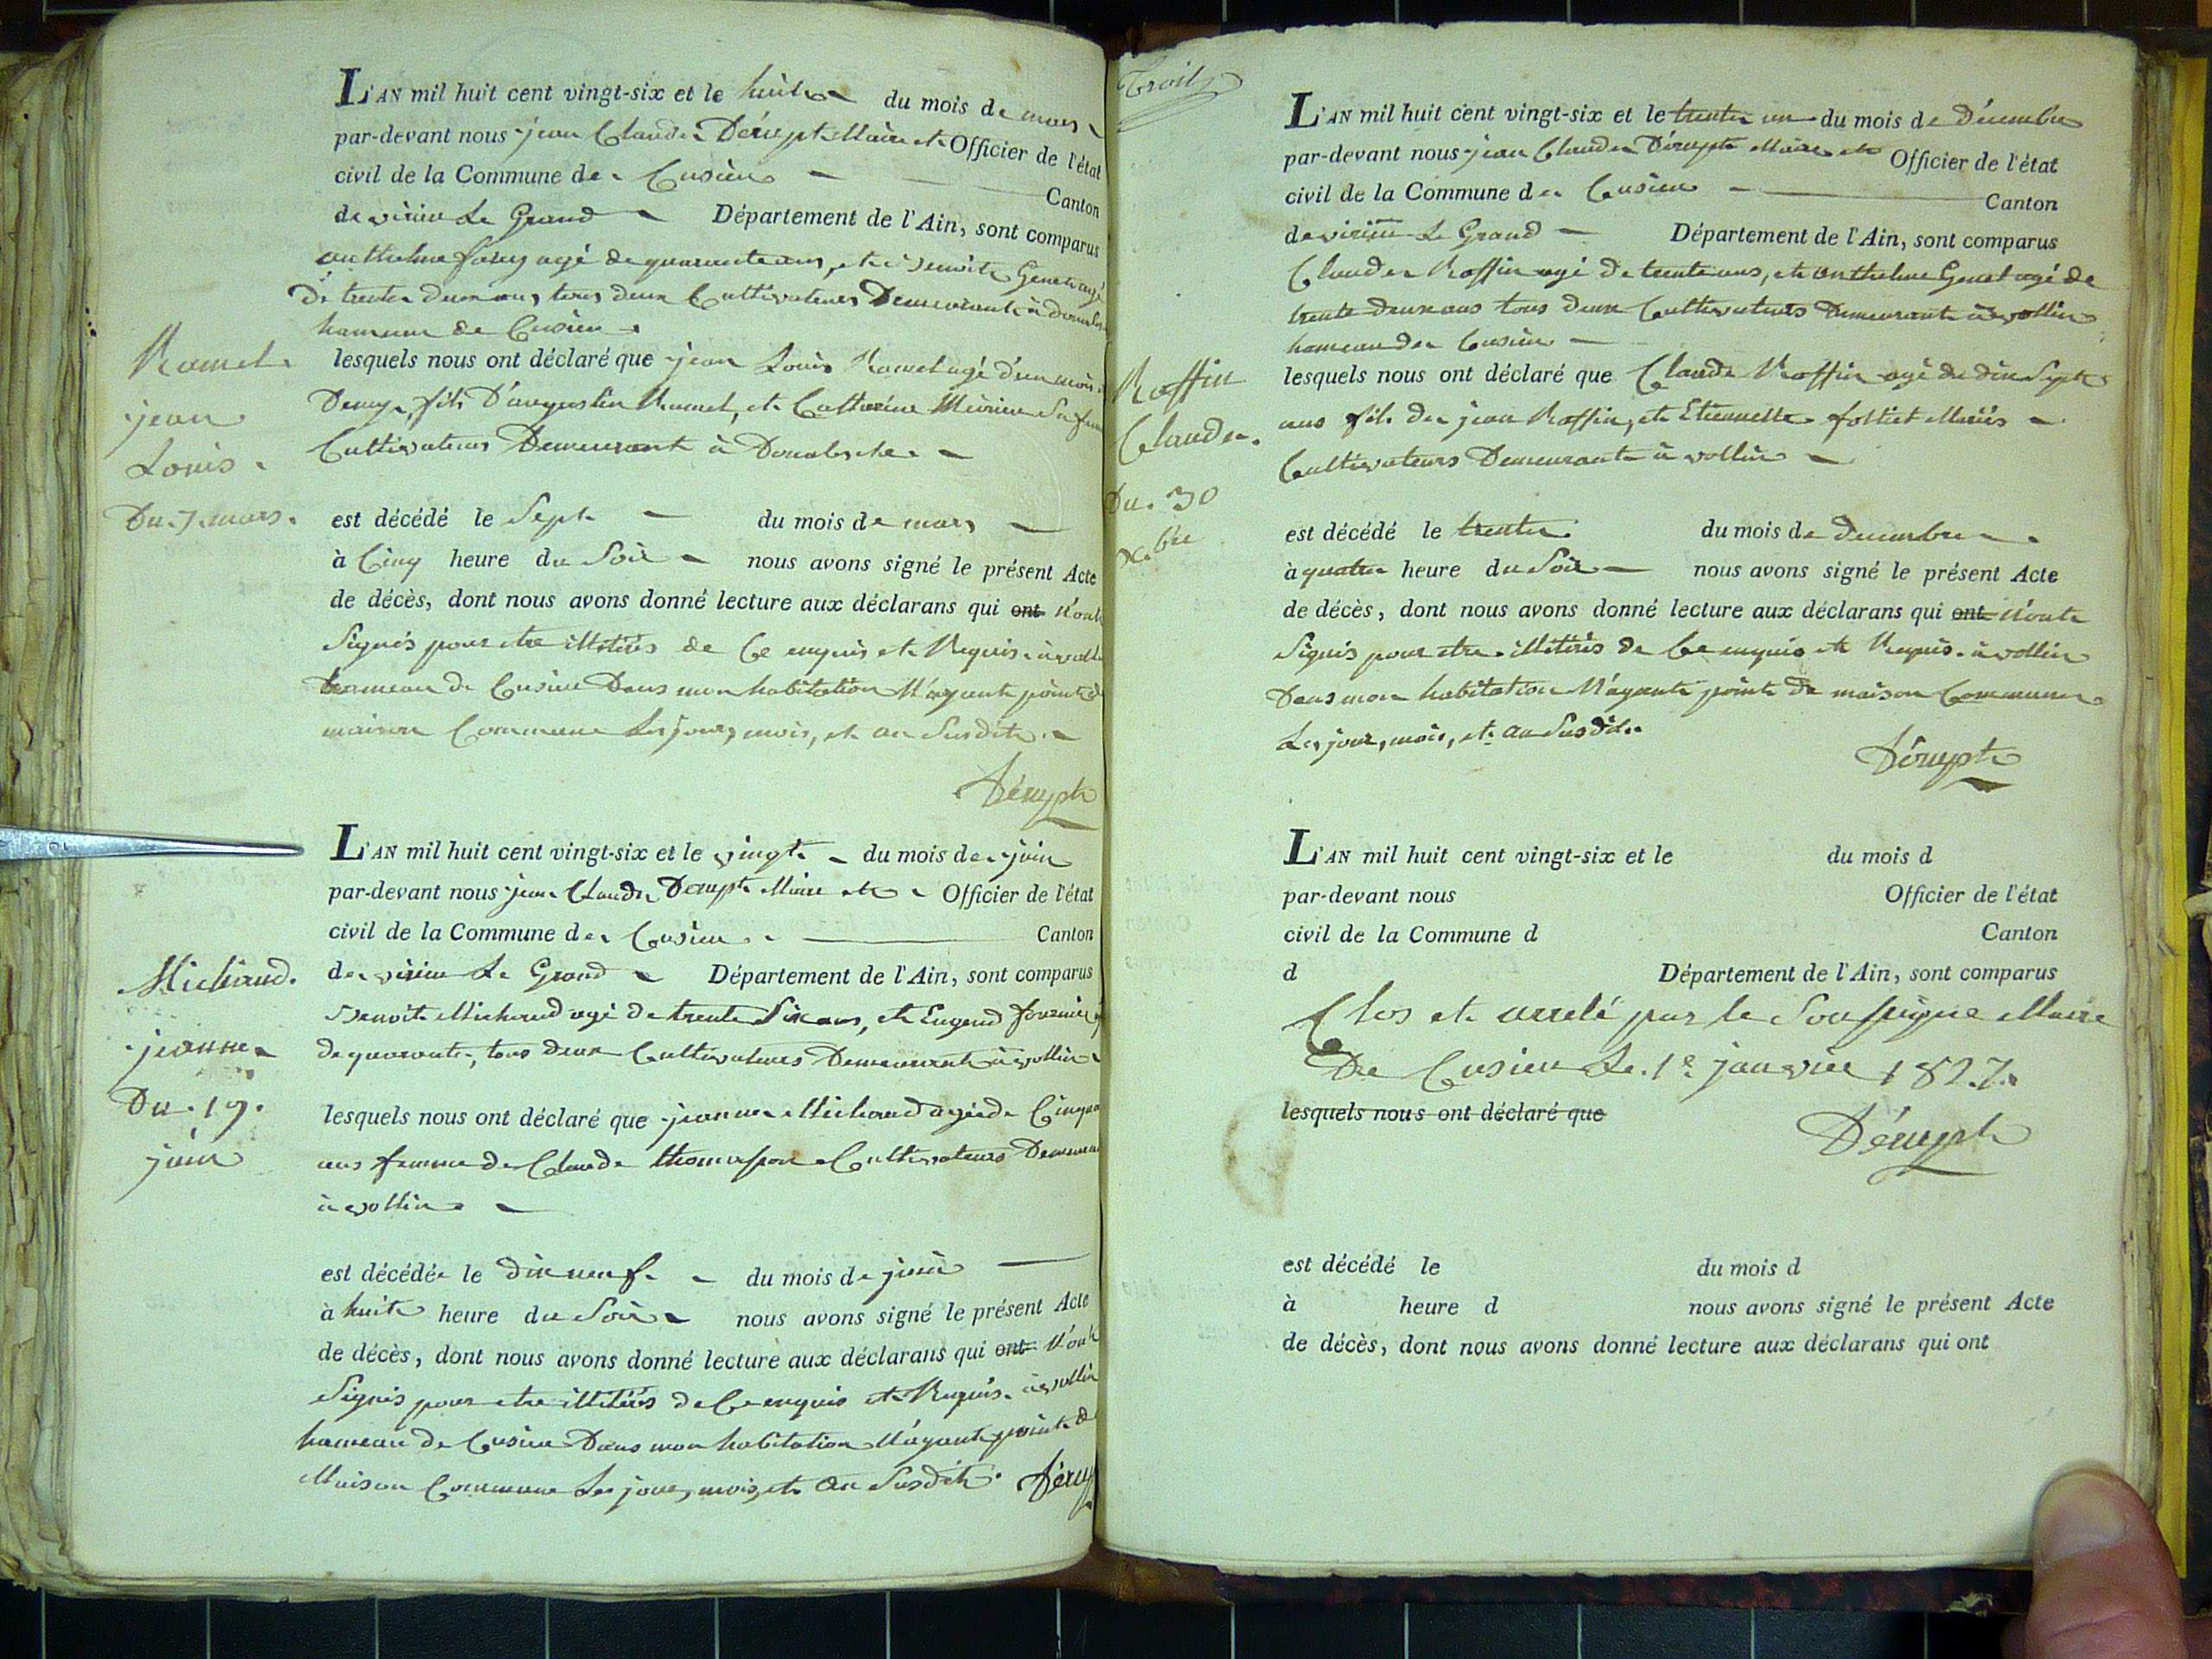 L'AN mil huit cent vingt-six et le huit du mois de mars
par-devant nous jean Claude Dérupt Maire et Officier de l'état
civil de la Commune de Cusieu Canton
de virieu Le Grand Département de l'Ain, sont comparus
anthelme agé de quarante ans, et Benoit Genet agé
de trente deux ans tous deux Cultivateurs Demeurant à
hameau de Cusieu
Ramel
jean
Louis
Du 7 mars.
lesquels nous ont déclaré que jean Louis Ramel agé d'un mois
Demy, fils D'augustin Ramel, et Catherine sa
Cultivateurs Demeurant à
est décédé le Sept du mois de mars
à Cinq heure du Soir nous avons signé le présent Acte
de décès, dont nous avons donné lecture aux déclarans qui ont N'ont
Signés pour etre illitérés de Ce enquis et Requis. à
hameau de Cusieu Dans mon habitation N'ayant point de
maison Commune Les jour, mois, et an Susdit.
Dérupt
L'AN mil huit cent vingt-six et le vingt du mois de juin
par-devant nous jean Claude Dérupt Maire et Officier de l'état
civil de la Commune de Cusieu Canton
de virieu Le Grand Département de l'Ain, sont comparus
Benoit Michaud agé de trente Six ans, et Eugend fournier
de quarante, tous deux Cultivateurs Demeurant à vollin
Michaud.
jeanne
Du 19.
juin
lesquels nous ont déclaré que jeanne Michaud agée de
ans femme de Claude Cultivateurs
à vollin
est décédée le dix neuf du mois de juin
à huit heure du Soir nous avons signé le présent Acte
de décès, dont nous avons donné lecture aux déclarans qui ont N'ont
Signés pour etre illitérés de Ce enquis et Requis. à vollin
hameau de Cusieu Dans mon habitation N'ayant point de
Maison Commune Les jour, mois, et an Susdit.
Trois
L'AN mil huit cent vingt-six et le trente un du mois de Décembre
par-devant nous jean Claude Dérupt Maire et Officier de l'état
civil de la Commune de Cusieu Canton
de virieu Le Grand Département de l'Ain, sont comparus
Claude Roffin agé de trente ans, et anthelme Genet agé de
trente deux ans tous deux Cultivateurs Demeurant à vollin
hameau de Cusieu
Roffin
Claude.
Du. 30
xbre
lesquels nous ont déclaré que Claude Roffin agé de dix Sept
ans fils de jean Roffin, et Etiennette folliet Mariés
Cultivateurs Demeurant à vollin
est décédé le trente du mois de Decembre
à quatre heure du Soir nous avons signé le présent Acte
de décès, dont nous avons donné lecture aux déclarans qui ont N'ont
Signés pour etre illitérés de Ce enquis et Requis. à vollin
Dans mon habitation N'ayant point de maison Commune
Les jour, mois, et an Susdit.
Dérupt
L'AN mil huit cent vingt-six et le du mois d
par-devant nous Officier de l'état
civil de la Commune d Canton
d Département de l'Ain, sont comparus
Clos et arreté par le Soussigné Maire
De Cusieu Le. 1er janvier 1827.
lesquels nous ont déclaré que
Dérupt
est décédé le du mois d
à heure d nous avons signé le présent Acte
de décès, dont nous avons donné lecture aux déclarans qui ont